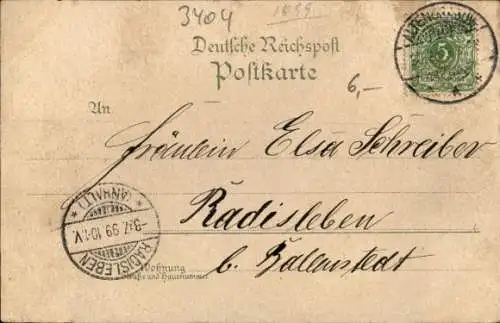 3404
1899
Deutsche Reichspost
Postkarte
5
6,-
An
Fräulein Elsa Schreiber
Radisleben
b. Ballenstedt
Wohnung
(Straße und Hausnummer)
RADISLEBEN
(ANHALT)
99 10-1.V.